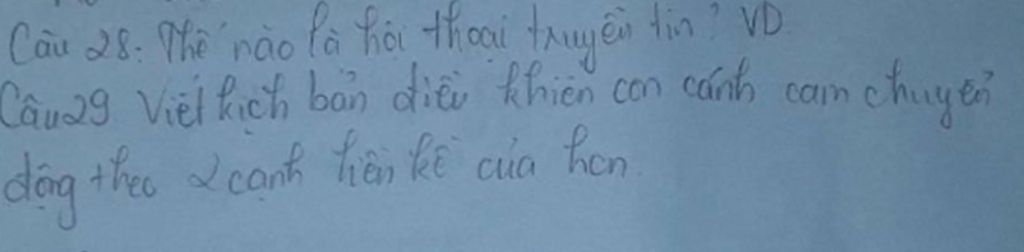 Câu 28. Thế nào là hội thoại truyền tin? VD.
Câu 29 Viết kịch bản điều khiển con cánh cam chuyển
động theo 2 cạnh liên kề của hcn.